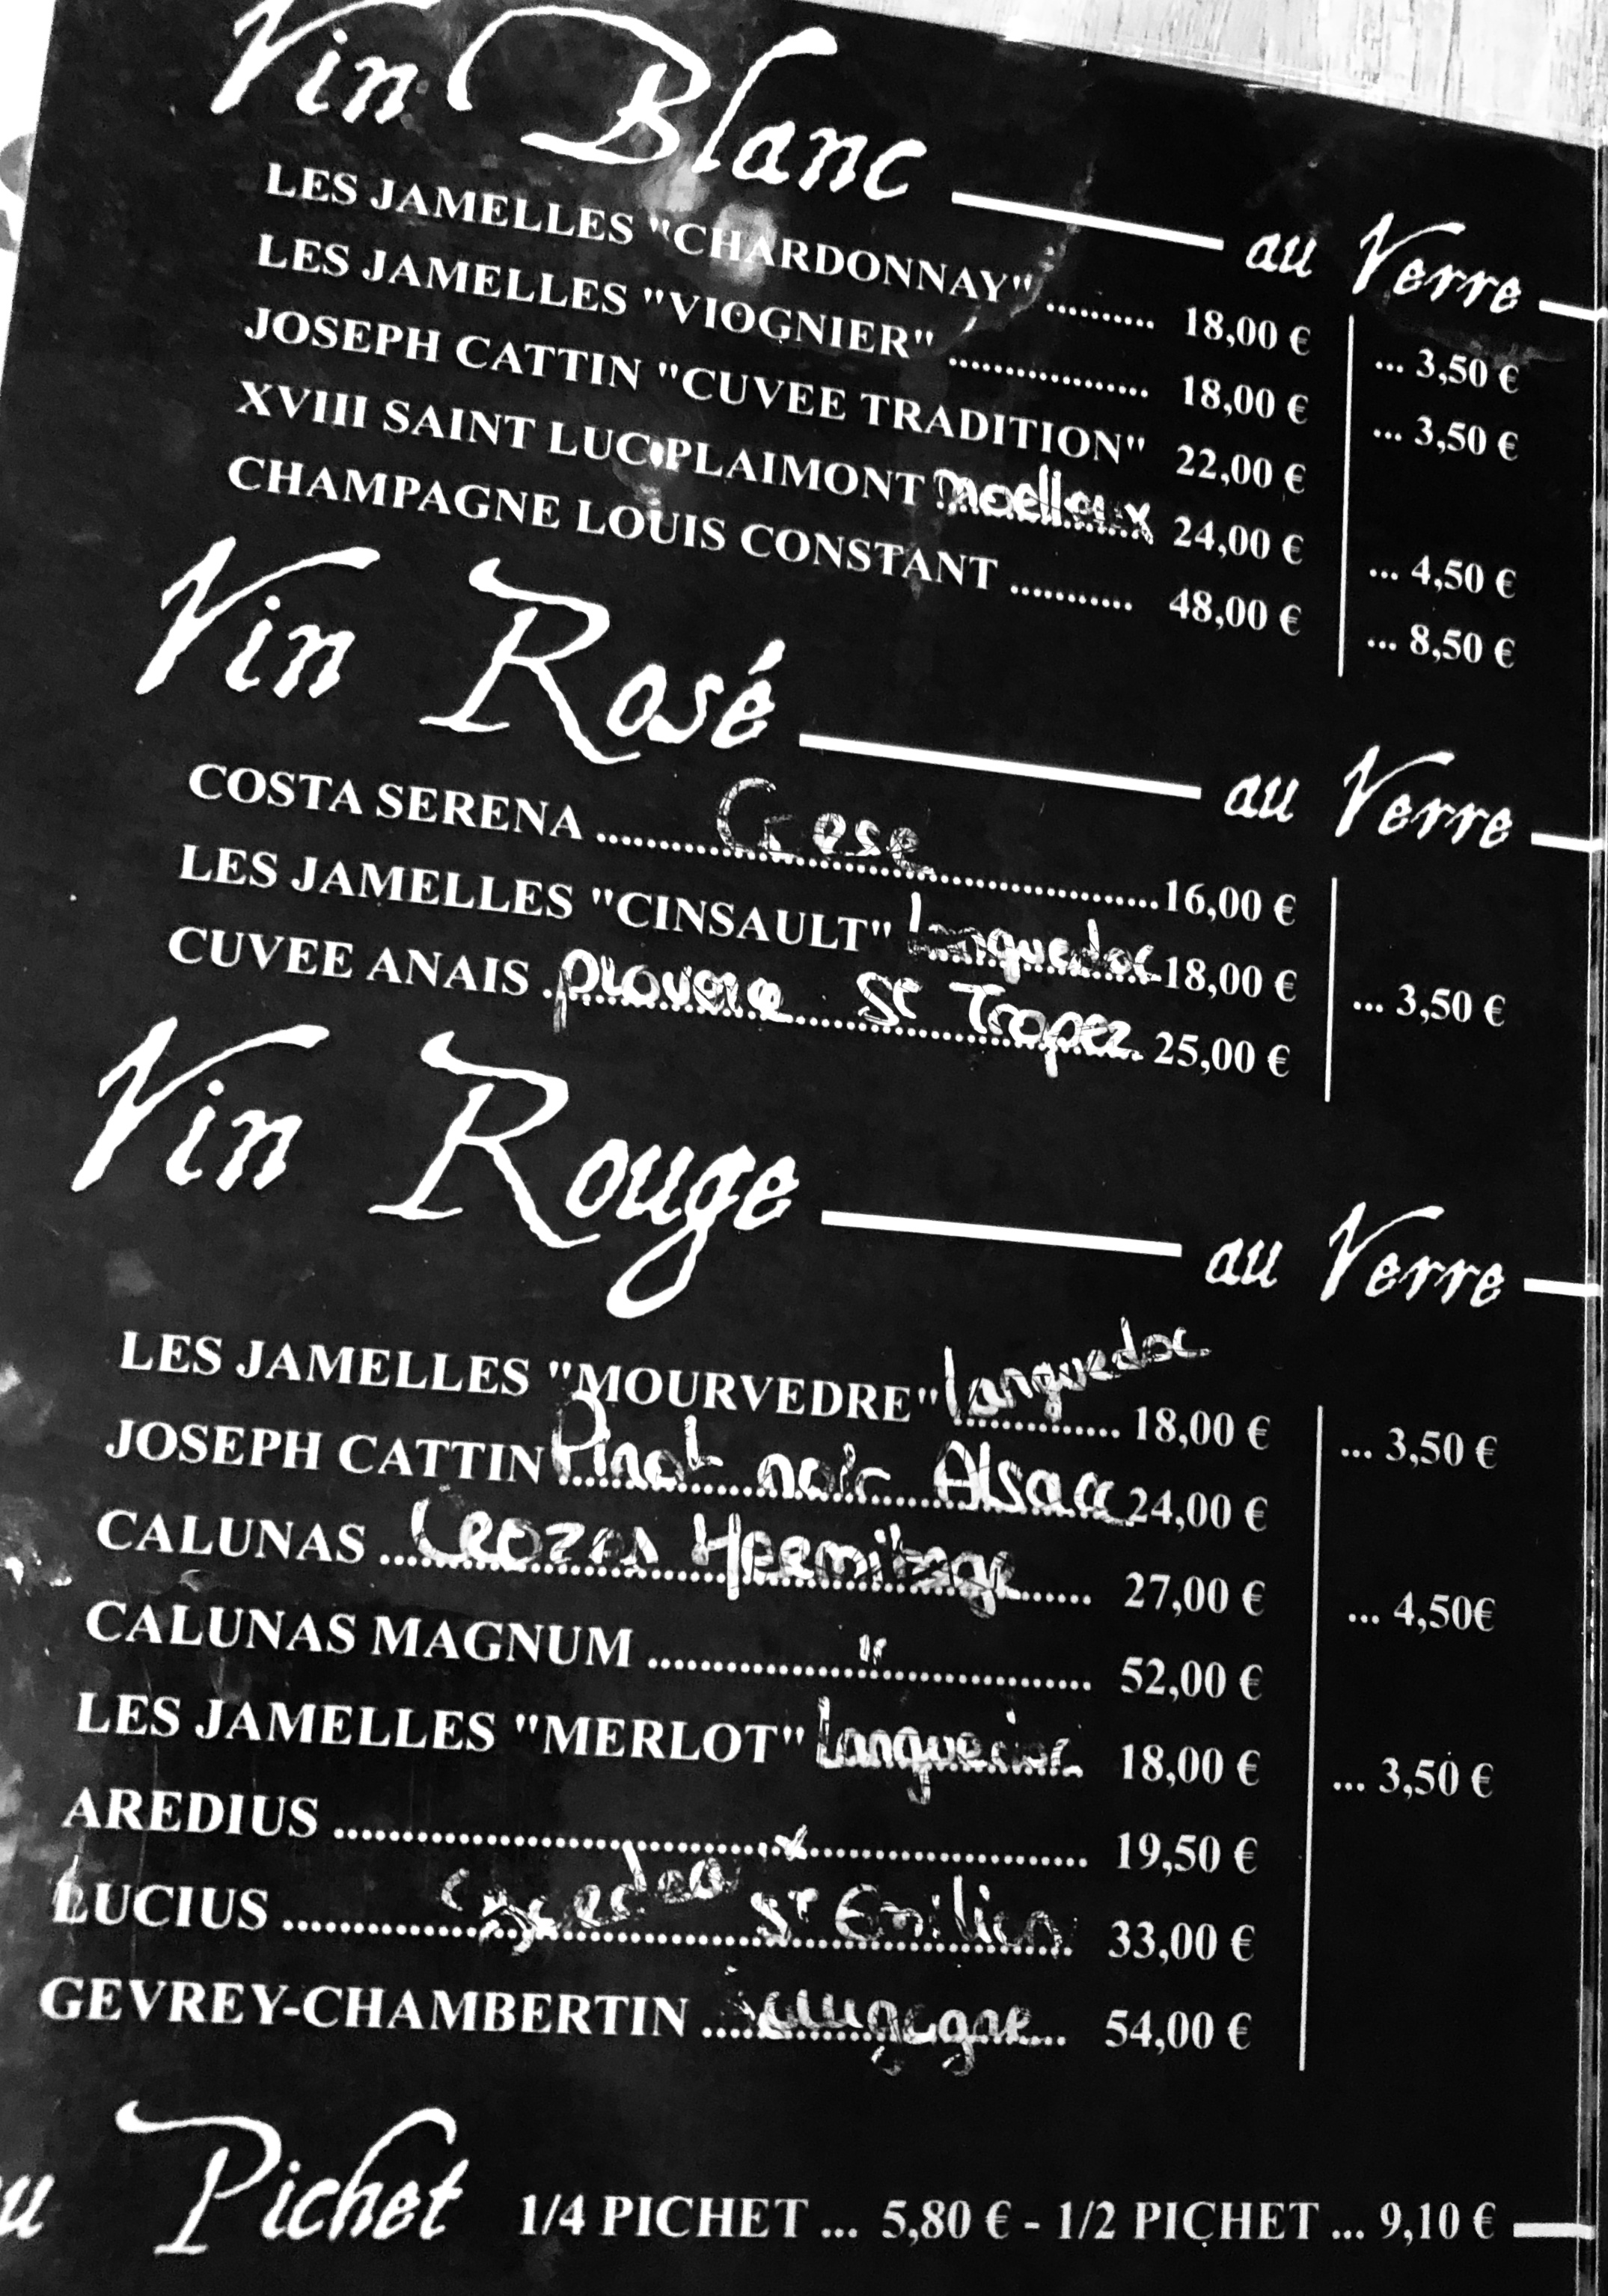 Vin Blanc au Verre
LES JAMELLES "CHARDONNAY" .......... 18,00 € ... 3,50 €
LES JAMELLES "VIOGNIER" ................... 18,00 € ... 3,50 €
JOSEPH CATTIN "CUVEE TRADITION" 22,00 €
XVIII SAINT LUC PLAIMONT moelleux 24,00 € ... 4,50 €
CHAMPAGNE LOUIS CONSTANT ........... 48,00 € ... 8,50 €
Vin Rosé au Verre
COSTA SERENA ........ Corse ........ 16,00 €
LES JAMELLES "CINSAULT" Languedoc 18,00 € ... 3,50 €
CUVEE ANAIS St Tropez 25,00 €
Vin Rouge au Verre
LES JAMELLES "MOURVEDRE" Languedoc ............ 18,00 € ... 3,50 €
JOSEPH CATTIN Pinot noir Alsace 24,00 €
CALUNAS ... Crozes Hermitage ...... 27,00 € ... 4,50€
CALUNAS MAGNUM ........ " ........ 52,00 €
LES JAMELLES "MERLOT" Languedoc 18,00 € ... 3,50 €
AREDIUS ........ 19,50 €
LUCIUS ........ St Emilion 33,00 €
GEVREY-CHAMBERTIN .... Bourgogne ... 54,00 €
Pichet 1/4 PICHET ... 5,80 € - 1/2 PICHET ... 9,10 €